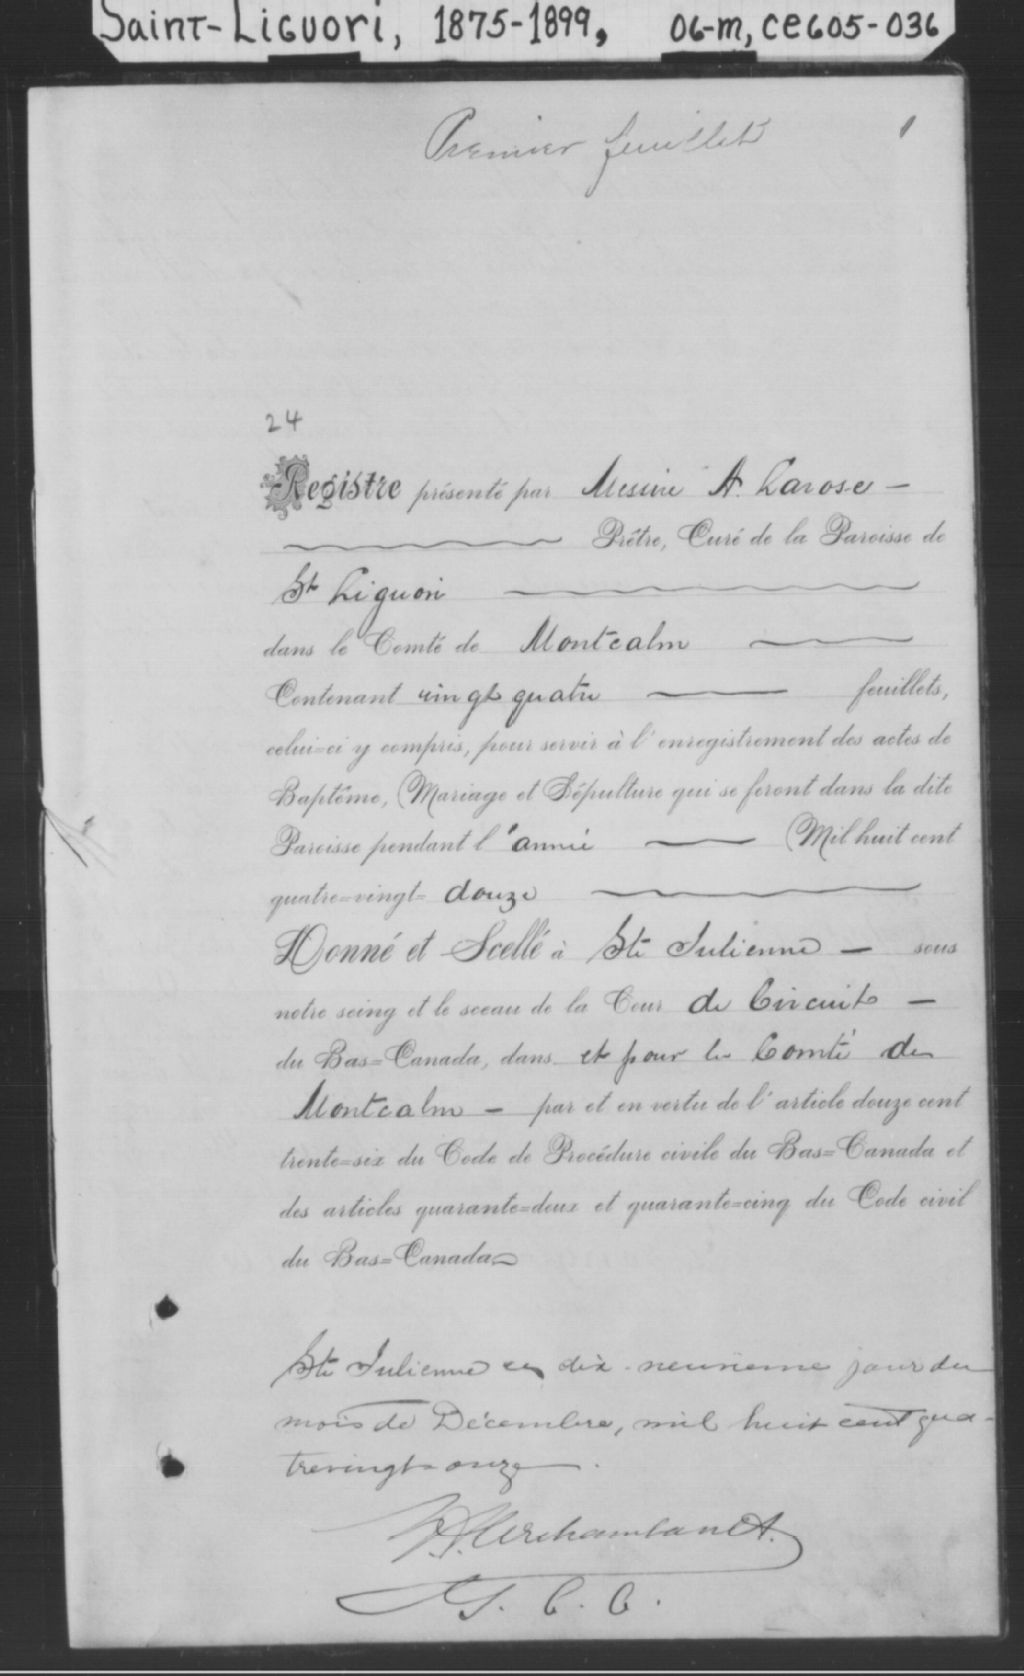 Saint-Liguori, 1875-1899, 06-m, ce605-036
Premier feuillet 1
24
Registre présenté par Messire A. Larose —
Prêtre, Curé de la Paroisse de
St Liguori
dans le Comté de Montcalm
Contenant vingt quatre feuillets,
celui=ci y compris, pour servir à l'enregistrement des actes de
Baptême, Mariage et Sépulture qui se feront dans la dite
Paroisse pendant l'année Mil huit cent
quatre=vingt= douze
Donné et Scellé à Ste Julienne — sous
notre seing et le sceau de la Cour de Circuit —
du Bas=Canada, dans et pour le Comté de
Montcalm — par et en vertu de l'article douze cent
trente=six du Code de Procédure civile du Bas=Canada et
des articles quarante=deux et quarante=cinq du Code civil
du Bas=Canada
Ste Julienne ce dix-neuvieme jour du
mois de Décembre, mil huit cent qua-
trevingt onze.
C. C.